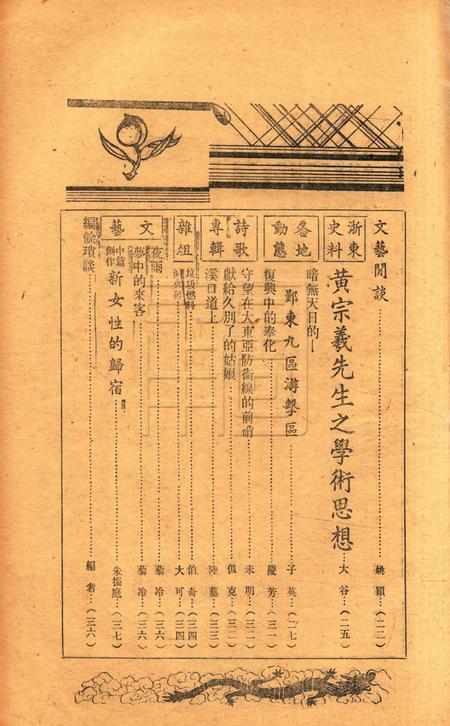 文藝閒談 姚穎 (二三)
浙東史料
黃宗羲先生之學術思想 大谷 (二五)
各地動態
暗無天日的—
鄞東九區游擊區 子英 (二七)
復興中的奉化 慶芳 (三一)
詩歌專輯
守望在大東亞防衛線的前哨 未明 (三二)
獻給久別了的姑娘 但克 (三二)
溪口道上 陸墓 (三三)
雜俎
垃圾燃料 伯奇 (三四)
大可 (三四)
文藝
夜雨 藝冷 (三六)
夢中的來客 藝冷 (三六)
中篇創作 新女性的歸宿 朱振庭 (三七)
編餘瑣談 編者 (三六)